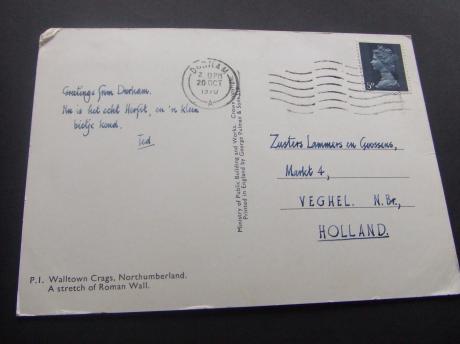 Greetings from Durham.
Nu is het echt Herfst, en 'n klein
bietje koud.
Ted
DURHAM
20 OCT
1970
A
5D
Ministry of Public Building and Works. Crown
Printed in England by George Pulman & Sons
Zusters Lammers en Goossens,
Markt 4,
VEGHEL. N. Br,
HOLLAND.
P.1. Walltown Crags, Northumberland.
A stretch of Roman Wall.